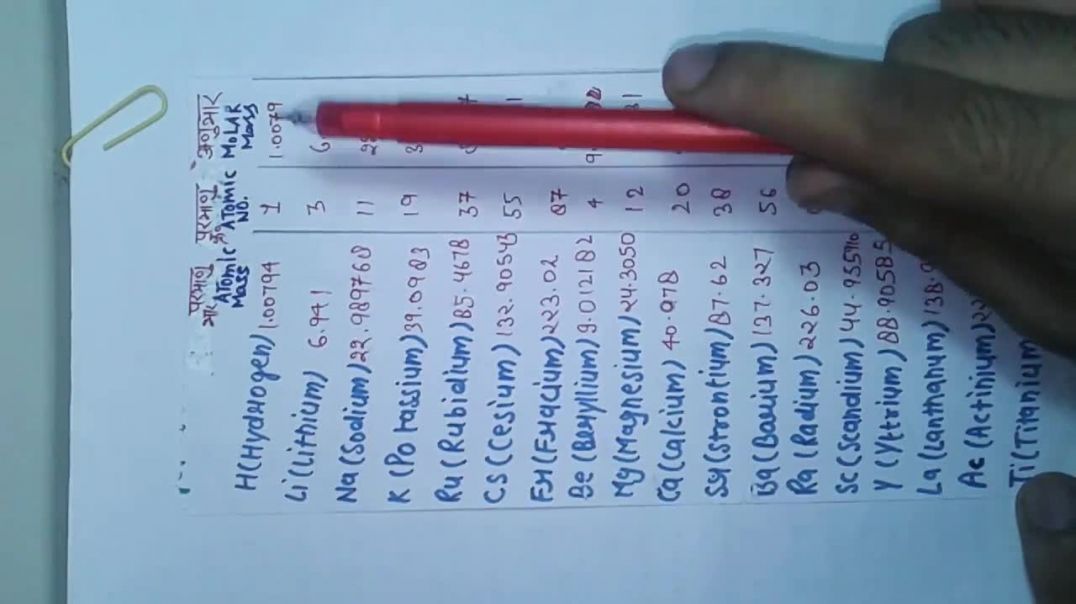 परमाणु भार परमाणु क्रं अणुभार
ATOMIC Mass ATOMIC NO. MOLAR Mass
H(Hydrogen) 1.00794 1 1.0079
Li(Lithium) 6.941 3 6.
Na(Sodium) 22.989768 11
K(Potassium) 39.0983 19 3
Ru(Rubidium) 85.4678 37
CS(Cesium) 132.90543 55
Fr(Fracium) 223.02 87
Be(Beryllium) 9.012182 4 9.
Mg(Magnesium) 24.3050 12
Ca(Calcium) 40.078 20
Sr(Strontium) 87.62 38
Ba(Barium) 137.327 56
Ra(Radium) 226.03
Sc(Scandium) 44.955910
Y(Yttrium) 88.90585
La(Lanthanum) 138.9
Ac(Actinium) 22
Ti(Titanium